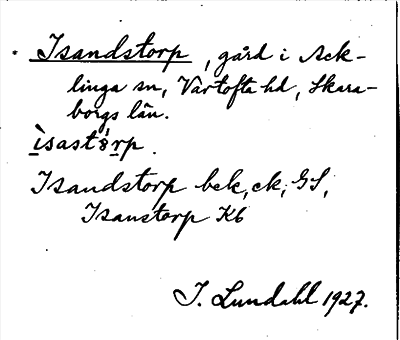 Isandstorp, gård i Ack-
linga sn, Vartofta hd, Skara-
borgs län.
ìsastórp.
Isandstorp bek, ck, GS,
Isanstorp Kb
I. Lundahl 1927.